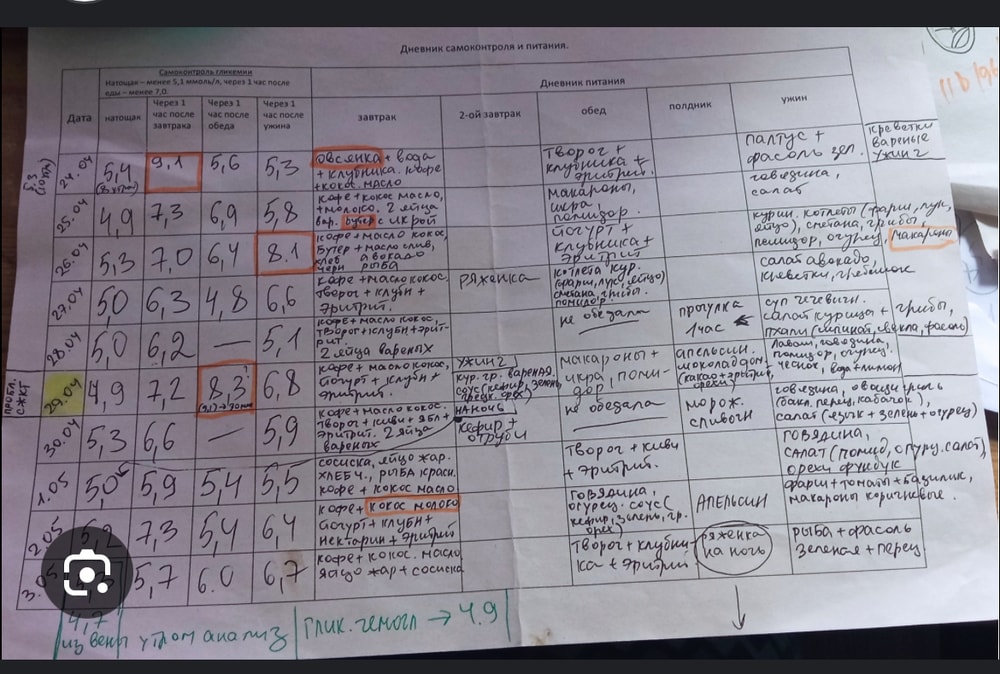 Дневник самоконтроля и питания.
Дата
Самоконтроль гликемии
Натощак – менее 5,1 ммоль/л, через 1 час после
еды – менее 7,0.
Дневник питания
натощак
Через 1
час после
завтрака
Через 1
час после
обеда
Через 1
час после
ужина
завтрак
2-ой завтрак
обед
полдник
ужин
24.04
5,4
9,1
5,6
5,3
овсянка + вода
+ клубника. кофе
+ кокос. масло
творог +
клубника +
эритрит.
палтус +
фасоль зел.
говядина,
салат
креветки
вареные
ужин 2
25.04
4,9
7,3
6,9
5,8
кофе + кокос масло,
+ молоко. 2 яйца
вар. бутер с икрой
макароны,
икра,
помидор.
курин. котлеты (фарш, лук,
яйцо), сметана, грибы,
помидор, огурец, макароны
26.04
5,3
7,0
6,4
8.1
кофе + масло кокос,
бутер + масло слив,
хлеб авокадо
черн рыба
йогурт +
клубника +
эритрит
салат авокадо,
креветки, гребешок
27.04
5,0
6,3
4,8
6,6
кофе + масло кокос.
творог + клубн +
эритрит.
ряженка
котлета кур.
(фарш, лук, яйцо)
сметана, грибы.
помидор.
суп чечевичн.
салат курица + грибы,
пхали (шпинат, свекла, фасоль)
28.04
5,0
6,2
—
5,1
кофе + масло кокос,
творог + клубн + эрит-
рит.
2 яйца вареных
не обедала
прогулка
1 час
лаваш, говядина,
помидор, огурец.
чеснок, вода + лимон
пробл.
с ЖКТ
29.04
4,9
7,2
8,3
6,8
кофе + масло кокос,
йогурт + клубн +
эритрит.
ужин 2
кур. гр. вареная
соус (кефир, зелень
грецк. орех)
на ночь
кефир +
отруби
макароны +
икра, поми-
дор
апельсин.
шоколад дом.
(какао + эритрит,
орехи)
говядина, овощи гриль
(бакл, перец, кабачок),
салат (язык + зелень + огурец)
30.04
5,3
6,6
—
5,9
кофе + масло кокос.
творог + киви + ябл +
эритрит. 2 яйца
вареных
не обедала
морож.
сливочн
говядина,
салат (помид, огур. салат),
орехи фундук
1.05
5,0
5,9
5,4
5,5
сосиска, яйцо жар.
хлеб ч., рыба красн.
кофе + кокос масло
творог + киви
+ эритрит.
фарш + томаты + базилик,
макароны коричневые.
2.05
5,2
7,3
5,4
6,4
кофе + кокос молоко
йогурт + клубн +
нектарин + эритрит
говядина,
огурец. соус (
кефир, зелень, гр.
орех)
апельсин
рыба + фасоль
зеленая + перец
3.05
5,7
6.0
6,7
кофе + кокос. масло
яйцо жар + сосиска
творог + клубни-
ка + эритрит
ряженка
на ночь
4,7
из вены утром анализ
глик. гемогл → 4.9